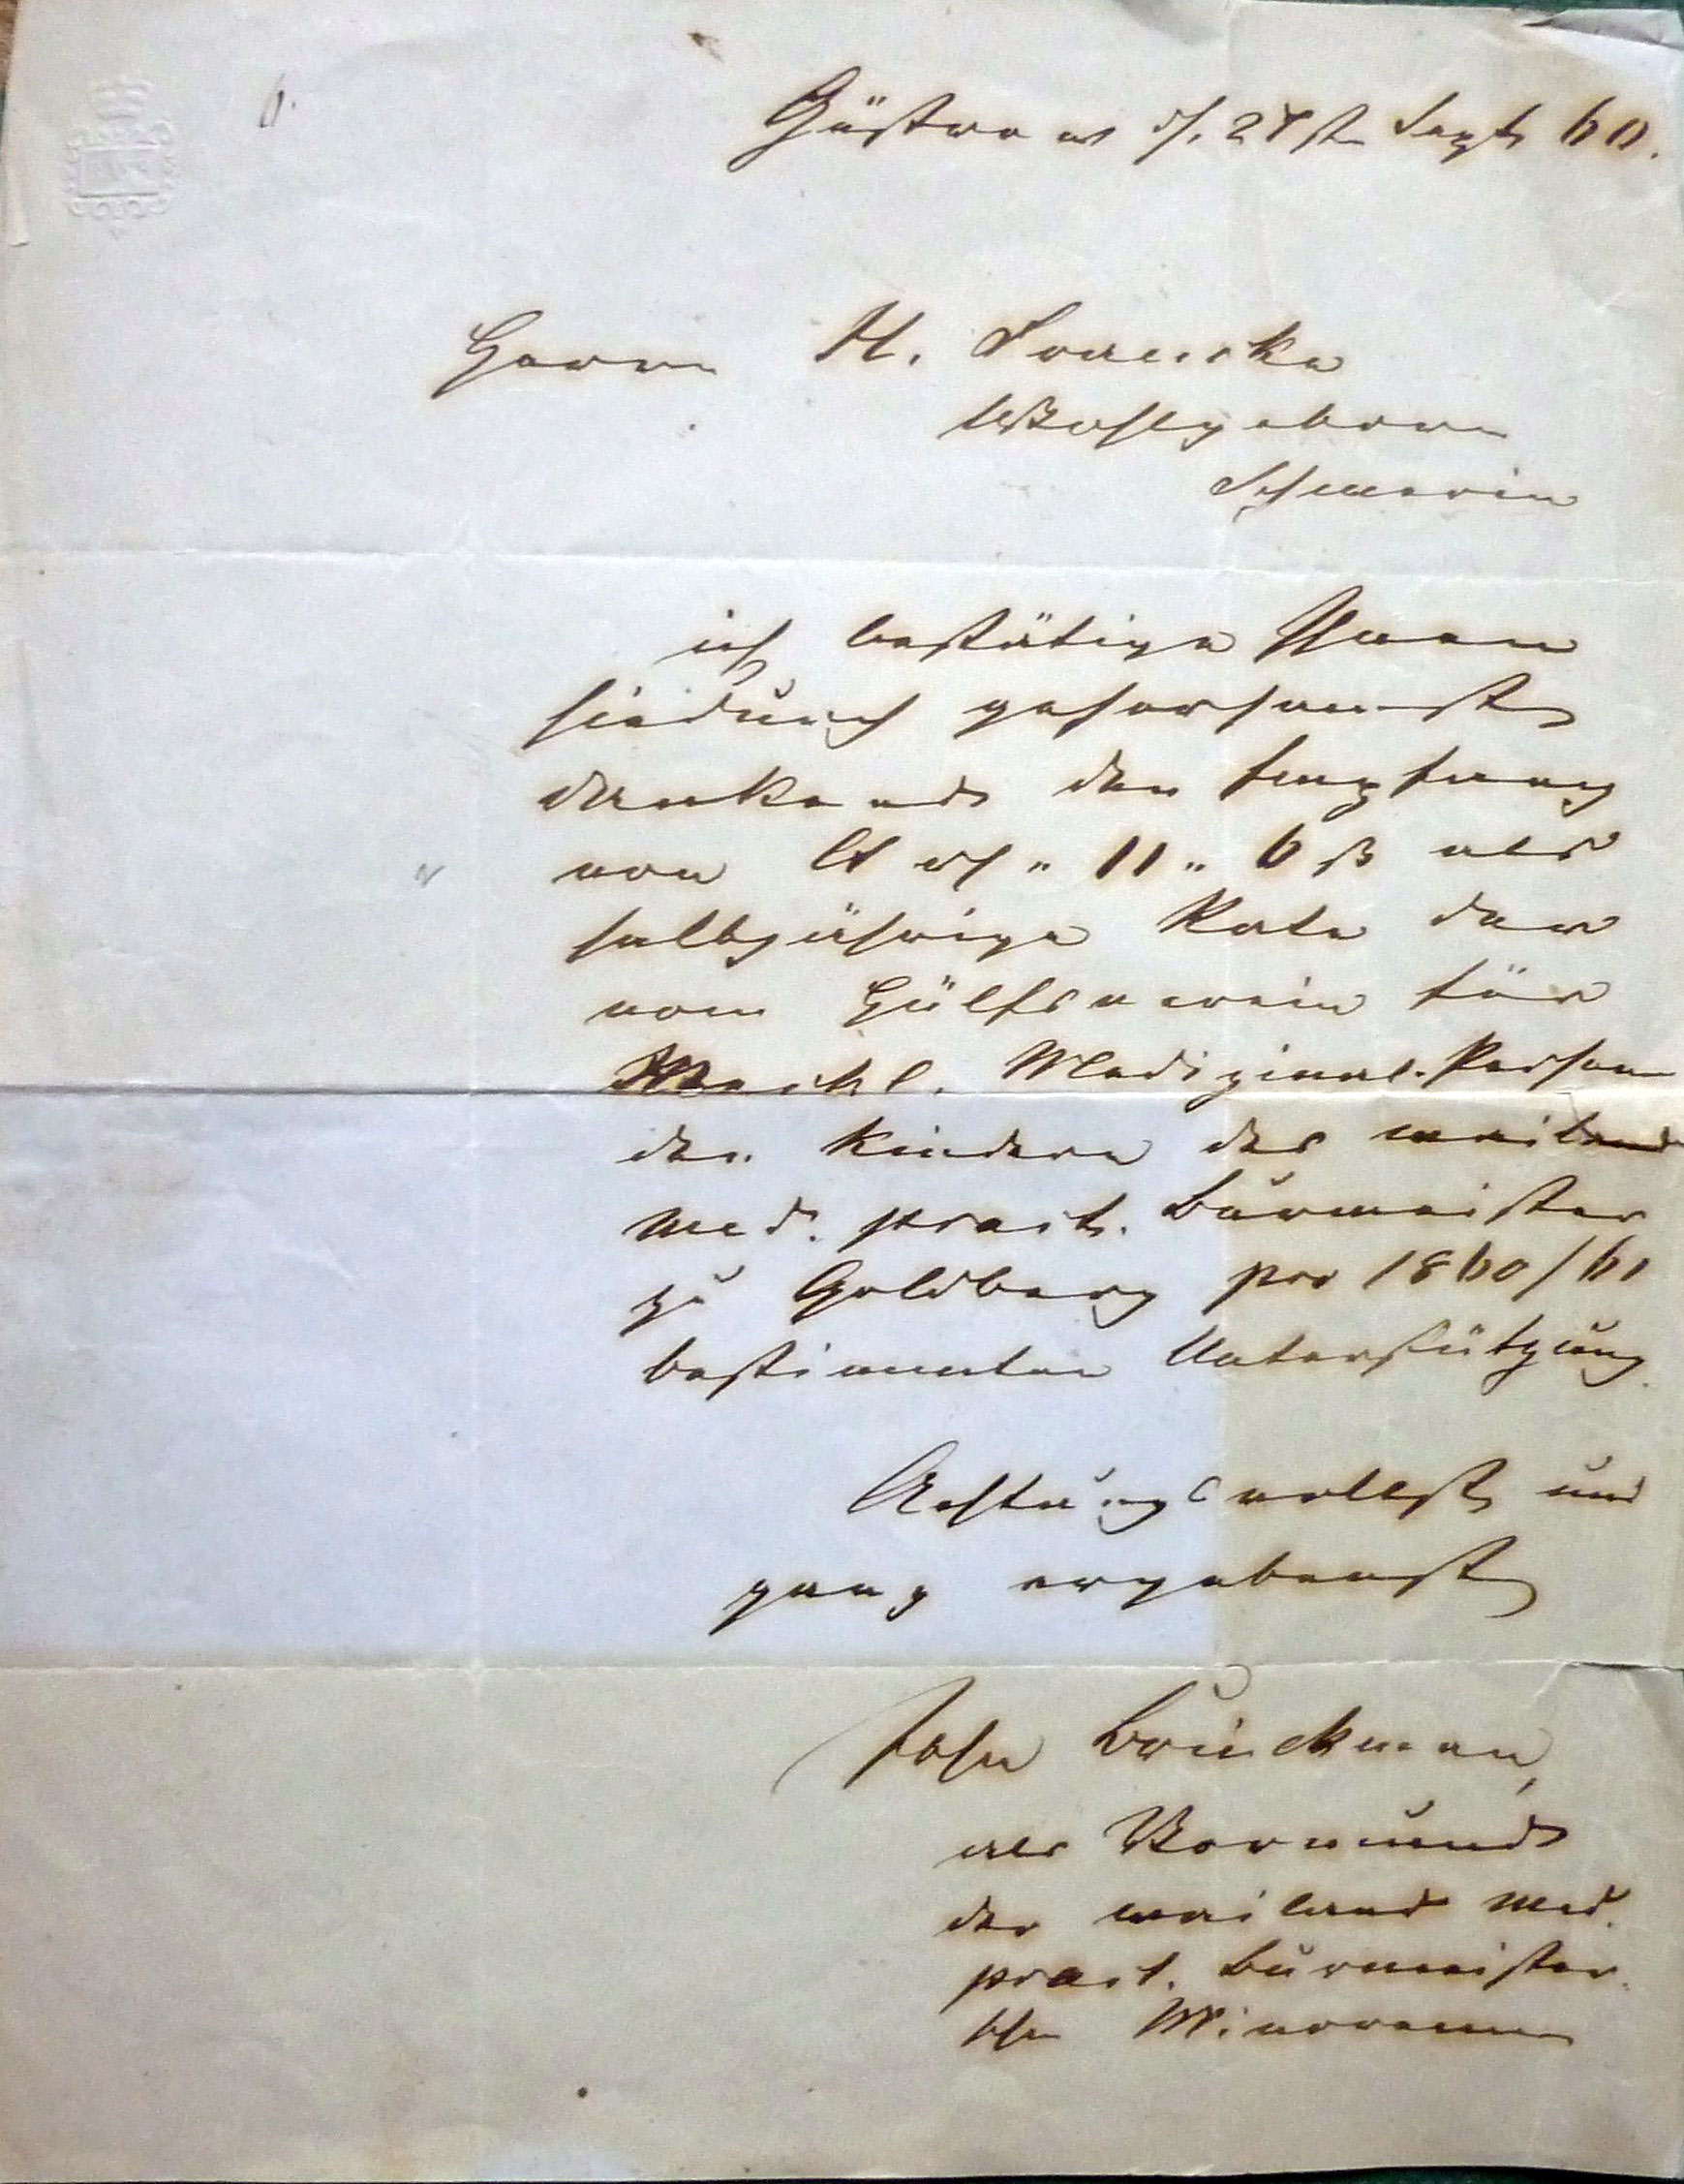 Güstrow d. 27st Sept 60.
Herrn H. Francke
Wohlgeborn
Schwerin
ich bestätige Ihnen
hiedurch gehorsamst
dankend den Empfang
von 11 " 6 ß als
halbjährige Rate der
vom Hülfsverein für
Meckl. Medizinal-Person
den Kindern des weiland
med. pract. Burmeister
zu Goldberg pro 1860/61
bestimmten Unterstützung.
Achtungsvollst und
ganz ergebenst
John Brinckman,
als Vormund
der weiland med.
pract. Burmeister
schen Minorennen